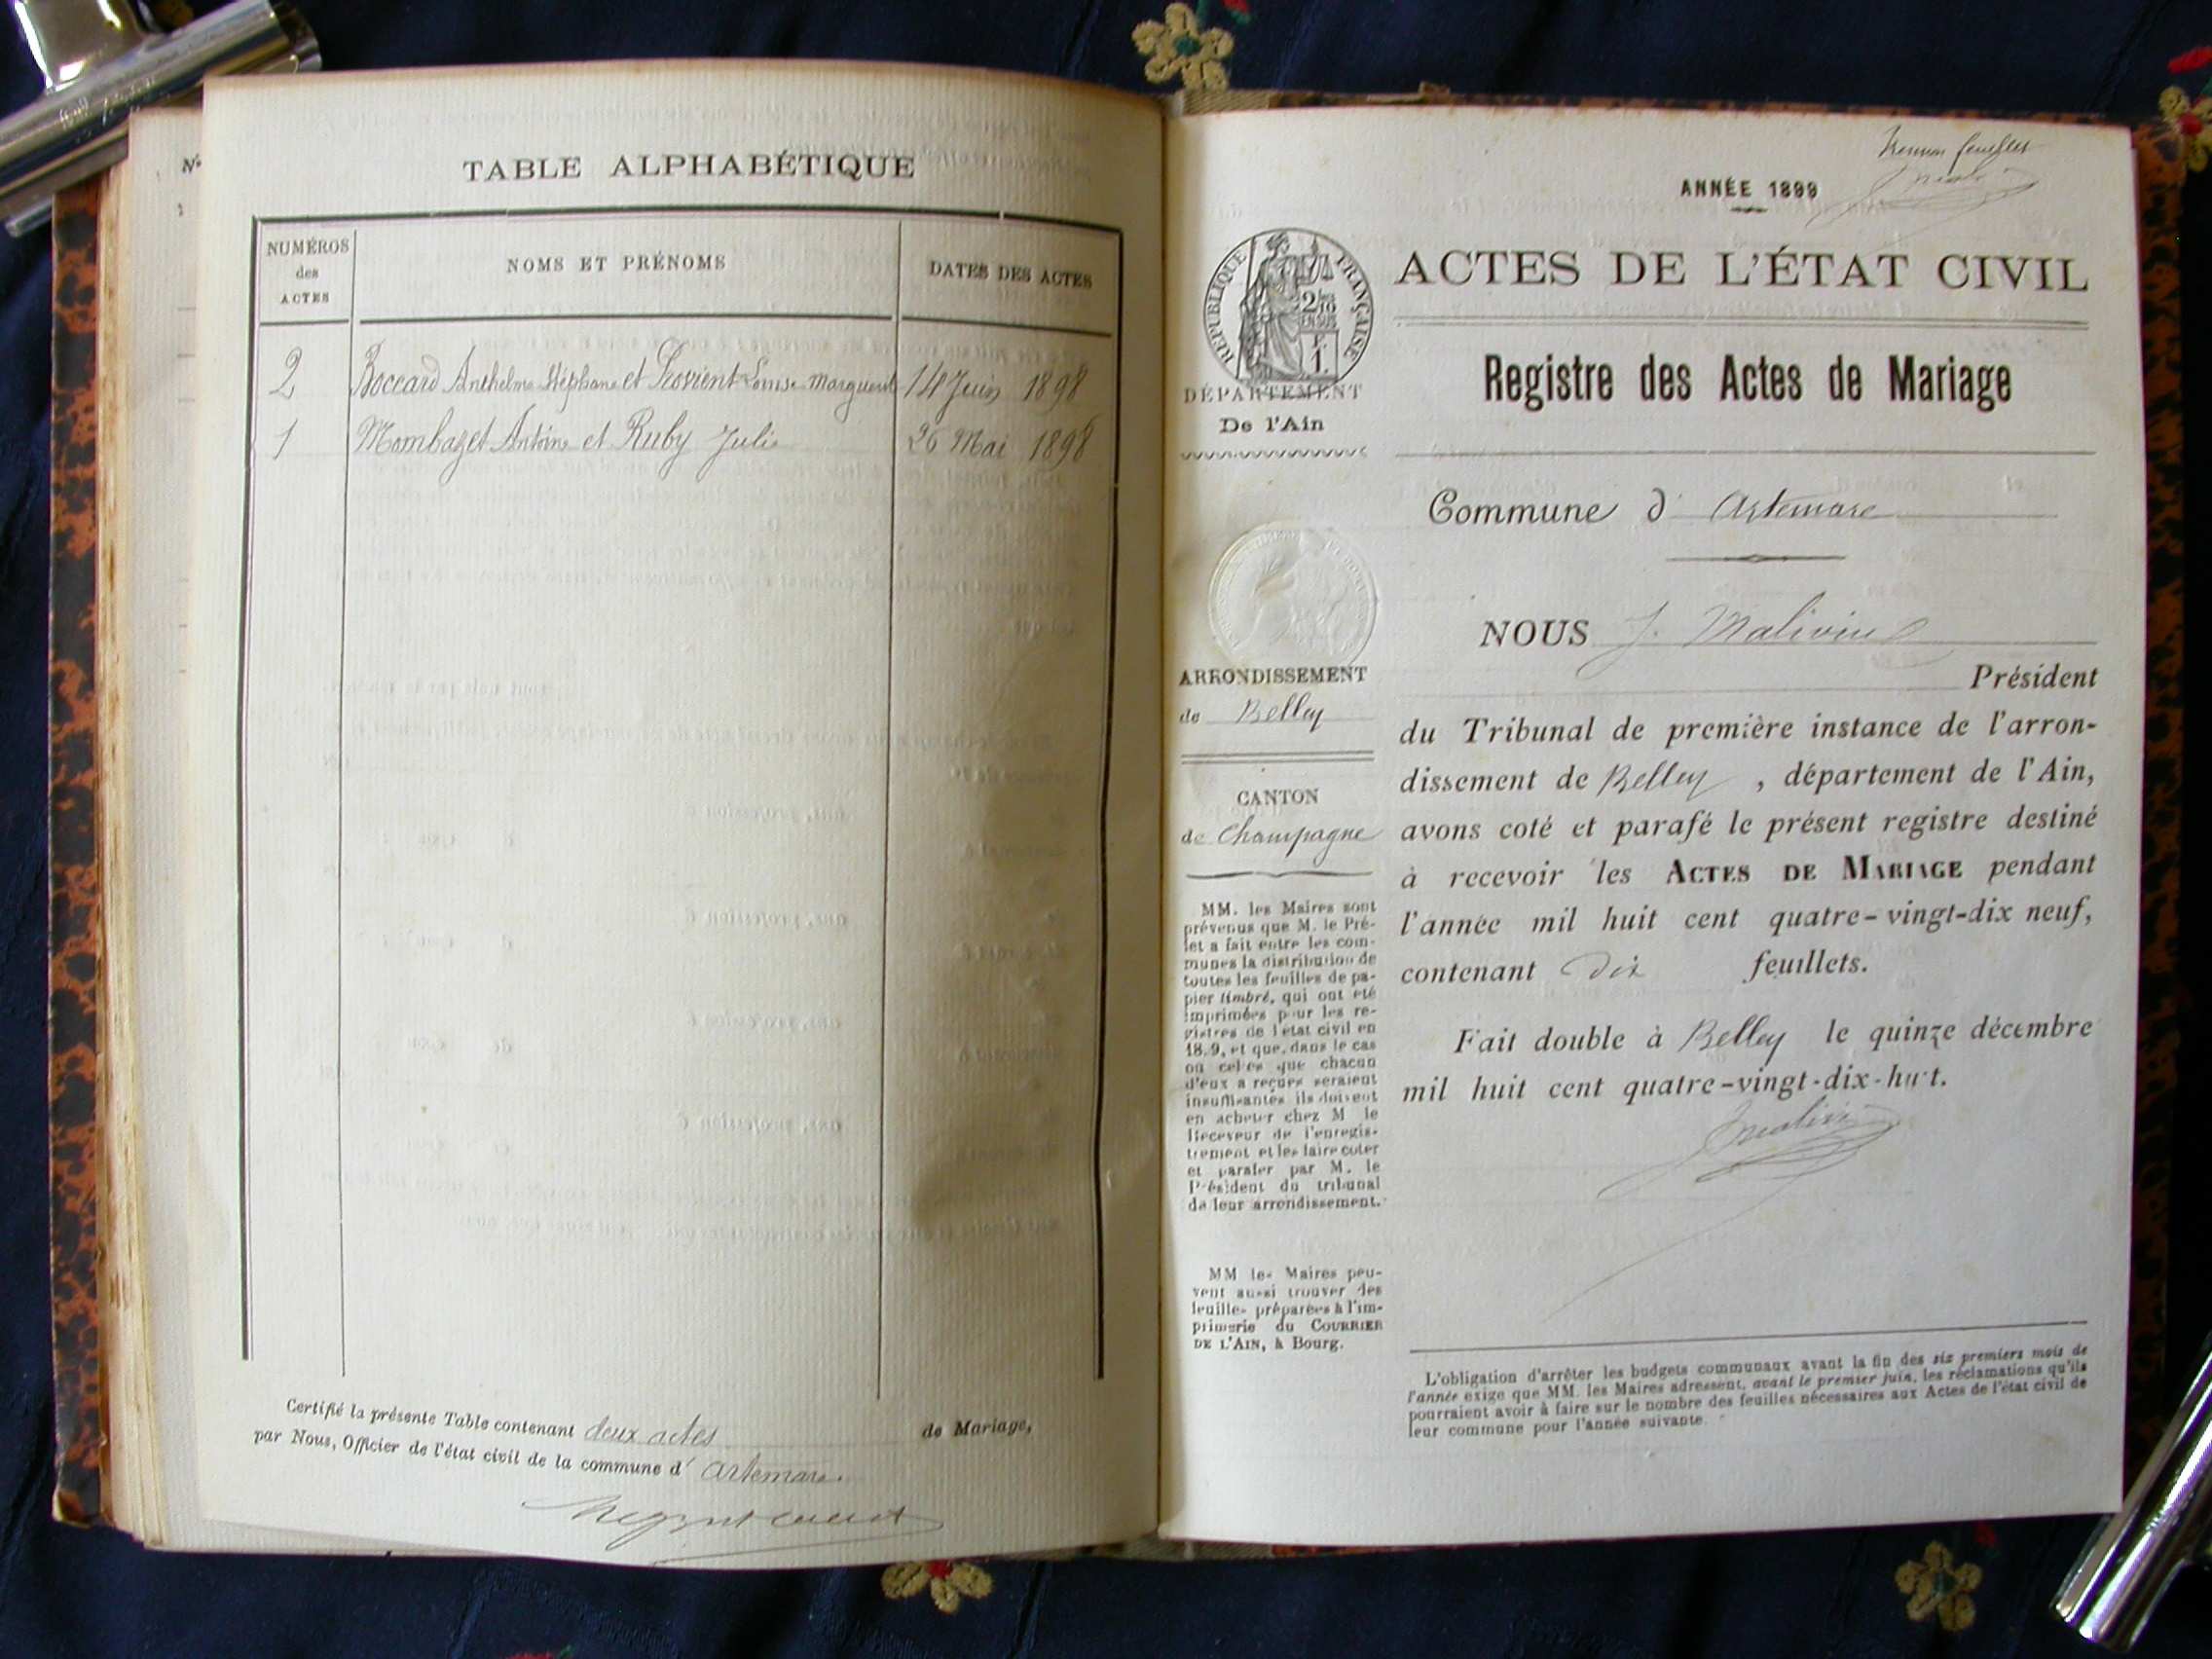 N°
TABLE ALPHABÉTIQUE
NUMÉROS
des
ACTES
NOMS ET PRÉNOMS
DATES DES ACTES
2 Boccard Anthelme Stéphane et Louise Marguerite 14 Juin 1898
1 Mombazet Antoine et Ruby Julie 26 Mai 1898
Certifié la présente Table contenant deux actes de Mariage,
par Nous, Officier de l'état civil de la commune d' Artemare.
feuillet
ANNÉE 1899
RÉPUBLIQUE FRANÇAISE
ACTES DE L'ÉTAT CIVIL
DÉPARTEMENT
De l'Ain
Registre des Actes de Mariage
Commune d' Artemare
NOUS J. Malivin
Président
ARRONDISSEMENT
de Belley
CANTON
de Champagne
du Tribunal de première instance de l'arron-
dissement de Belley, département de l'Ain,
avons coté et parafé le présent registre destiné
à recevoir les ACTES DE MARIAGE pendant
l'année mil huit cent quatre-vingt-dix neuf,
contenant dix feuillets.
Fait double à Belley le quinze décembre
mil huit cent quatre-vingt-dix-huit.
MM. les Maires sont
prévenus que M. le Pré-
fet a fait entre les com-
munes la distribution de
toutes les feuilles de pa-
pier timbré, qui ont été
imprimées pour les re-
gistres de l'état civil en
18.9, et que, dans le cas
où celles que chacun
d'eux a reçues seraient
insuffisantes ils doivent
en acheter chez M le
Receveur de l'enregis-
trement et les faire coter
et parafer par M. le
Président du tribunal
de leur arrondissement.
MM les Maires peu-
vent aussi trouver des
feuilles préparées à l'im-
primerie du COURRIER
DE L'AIN, à Bourg.
L'obligation d'arrêter les budgets communaux avant la fin des six premiers mois de
l'année exige que MM. les Maires adressent, avant le premier juin, les réclamations qu'ils
pourraient avoir à faire sur le nombre des feuilles nécessaires aux Actes de l'état civil de
leur commune pour l'année suivante.